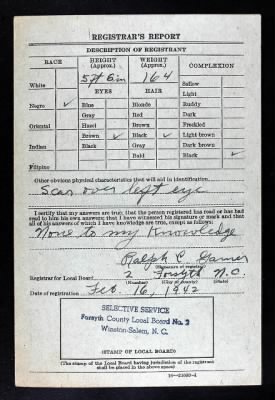 REGISTRAR'S REPORT
DESCRIPTION OF REGISTRANT
RACE HEIGHT (Approx.) WEIGHT (Approx.) COMPLEXION
5 ft 6 in 164
White Sallow
EYES HAIR Light
Negro ✓ Blue Blonde Ruddy
Gray Red Dark
Oriental Hazel Brown Freckled
Brown ✓ Black ✓ Light brown
Indian Black Gray Dark brown
Bald Black ✓
Filipino
Other obvious physical characteristics that will aid in identification
Scar over left eye
I certify that my answers are true; that the person registered has read or has had
read to him his own answers; that I have witnessed his signature or mark and that
all of his answers of which I have knowledge are true, except as follows:
None to my Knowledge
Ralph C.
(Signature of registrar)
Registrar for Local Board 2 Forsyth N.C.
(Number) (City or county) (State)
Date of registration Feb. 16, 1942
SELECTIVE SERVICE
Forsyth County Local Board No. 2
Winston-Salem, N. C.
(STAMP OF LOCAL BOARD)
(The stamp of the Local Board having jurisdiction of the registrant
shall be placed in the above space)